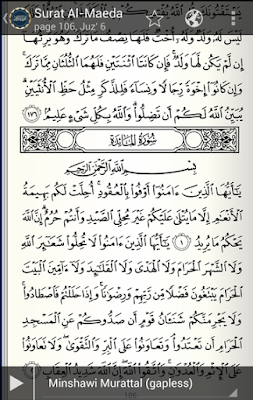 Surat Al-Maeda
page 106, Juz' 6
لَيْسَ لَهُۥ وَلَدٌ وَلَهُۥٓ أُخْتٌ فَلَهَا نِصْفُ مَا تَرَكَ وَهُوَ يَرِثُهَآ
إِن لَّمْ يَكُن لَّهَا وَلَدٌ فَإِن كَانَتَا ٱثْنَتَيْنِ فَلَهُمَا ٱلثُّلُثَانِ مِمَّا تَرَكَ
وَإِن كَانُوٓا۟ إِخْوَةً رِّجَالًا وَنِسَآءً فَلِلذَّكَرِ مِثْلُ حَظِّ ٱلْأُنثَيَيْنِ
يُبَيِّنُ ٱللَّهُ لَكُمْ أَن تَضِلُّوا۟ وَٱللَّهُ بِكُلِّ شَىْءٍ عَلِيمٌ ١٧٦
سُورَةُ المَائِدَة
بِسْمِ ٱللَّهِ ٱلرَّحْمَٰنِ ٱلرَّحِيمِ
يَٰٓأَيُّهَا ٱلَّذِينَ ءَامَنُوٓا۟ أَوْفُوا۟ بِٱلْعُقُودِ أُحِلَّتْ لَكُم بَهِيمَةُ
ٱلْأَنْعَٰمِ إِلَّا مَا يُتْلَىٰ عَلَيْكُمْ غَيْرَ مُحِلِّى ٱلصَّيْدِ وَأَنتُمْ حُرُمٌ إِنَّ ٱللَّهَ
يَحْكُمُ مَا يُرِيدُ ١ يَٰٓأَيُّهَا ٱلَّذِينَ ءَامَنُوا۟ لَا تُحِلُّوا۟ شَعَٰٓئِرَ ٱللَّهِ
وَلَا ٱلشَّهْرَ ٱلْحَرَامَ وَلَا ٱلْهَدْىَ وَلَا ٱلْقَلَٰٓئِدَ وَلَآ ءَآمِّينَ ٱلْبَيْتَ
ٱلْحَرَامَ يَبْتَغُونَ فَضْلًا مِّن رَّبِّهِمْ وَرِضْوَٰنًا وَإِذَا حَلَلْتُمْ فَٱصْطَادُوا۟
وَلَا يَجْرِمَنَّكُمْ شَنَـَٔانُ قَوْمٍ أَن صَدُّوكُمْ عَنِ ٱلْمَسْجِدِ
ٱلْحَرَامِ أَن تَعْتَدُوا۟ وَتَعَاوَنُوا۟ عَلَى ٱلْبِرِّ وَٱلتَّقْوَىٰ وَلَا تَعَاوَنُوا۟
عَلَى ٱلْإِثْمِ وَٱلْعُدْوَٰنِ وَٱتَّقُوا۟ ٱللَّهَ إِنَّ ٱللَّهَ شَدِيدُ ٱلْعِقَابِ ٢
Minshawi Murattal (gapless)
106